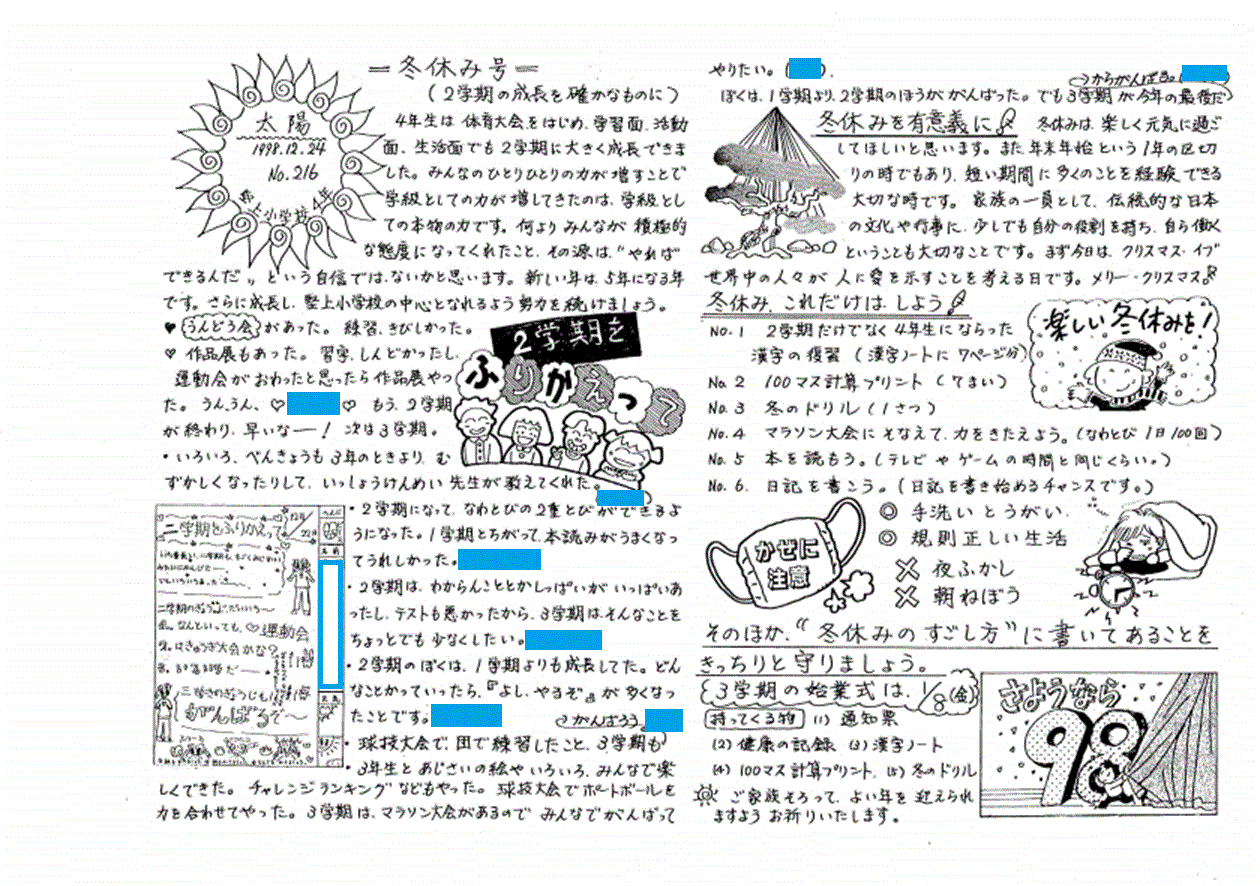 ＝冬休み号＝
(2学期の成長を確かなものに)
太陽
1998.12.24
No.216
堅上小学校4年
4年生は体育大会をはじめ、学習面、活動
面、生活面でも2学期に大きく成長できま
した。みんなのひとりひとりの力が増すことで
学級としての力が増してきたのは、学級とし
ての本物の力です。何よりみんなが積極的
な態度になってくれたこと、その源は、"やれば
できるんだ"という自信ではないかと思います。新しい年は、5年になる年
です。さらに成長し、堅上小学校の中心となれるよう努力を続けましょう。
♥うんどう会があった。練習、きびしかった。
♡作品展もあった。習字、しんどかったし、
運動会がおわったと思ったら作品展やっ
た。うんうん、♡ ♡ もう、2学期
が終わり、早いなー! 次は3学期。
2学期を
ふりかえって
・いろいろ、べんきょうも3年のときより、む
ずかしくなったりして、いっしょうけんめい先生が教えてくれた。
・2学期になって、なわとびの2重とびができるよ
うになった。1学期とちがって、本読みがうまくなっ
てうれしかった。
・2学期は、わからんこととかしっぱいがいっぱいあ
ったし、テストも悪かったから、3学期はそんなことを
ちょっとでも少なくしたい。
・2学期のぼくは、1学期よりも成長してた。どん
なことかっていったら、『よし、やるぞ』が多くなっ
たことです。
がんばろう。
・球技大会で、団で練習したこと、3学期も
・3年生とあじさいの絵やいろいろ、みんなで楽
しくできた。チャレンジランキングなどもやった。球技大会でポートボールを
力を合わせてやった。3学期は、マラソン大会があるのでみんなでがんばって
二学期をふりかえって
12月
22日
名前
運動会
きゅうぎ大会かな?
がんばるぞ〜
やりたい。( ).
からがんばる。( )
ぼくは、1学期より、2学期のほうががんばった。でも3学期が今年の最後だ
冬休みを有意義に
冬休みは、楽しく元気に過ご
してほしいと思います。また、年末年始という1年の区切
りの時でもあり、短い期間に多くのことを経験できる
大切な時です。家族の一員として、伝統的な日本
の文化や行事に、少しでも自分の役割を持ち、自ら働く
ということも大切なことです。まず今日は、クリスマス・イブ
世界中の人々が人に愛を示すことを考える日です。メリー・クリスマス。
冬休み、これだけはしよう
No.1 2学期だけでなく4年生にならった
漢字の復習(漢字ノートに7ページ分)
No.2 100マス計算プリント(てまい)
No.3 冬のドリル(1さつ)
No.4 マラソン大会にそなえて、力をきたえよう。(なわとび1日100回)
No.5 本を読もう。(テレビやゲームの時間と同じくらい。)
No.6. 日記を書こう。(日記を書き始めるチャンスです。)
楽しい冬休みを!
かぜに
注意
◎ 手洗いとうがい、
◎ 規則正しい生活
✕ 夜ふかし
✕ 朝ねぼう
そのほか、"冬休みのすごし方"に書いてあることを
きっちりと守りましょう。
3学期の始業式は、1/8(金)
持ってくる物 (1) 通知票
(2) 健康の記録 (3) 漢字ノート
(4) 100マス計算プリント、(5) 冬のドリル
ご家族そろって、よい年を迎えられ
ますようお祈りいたします。
さようなら
98